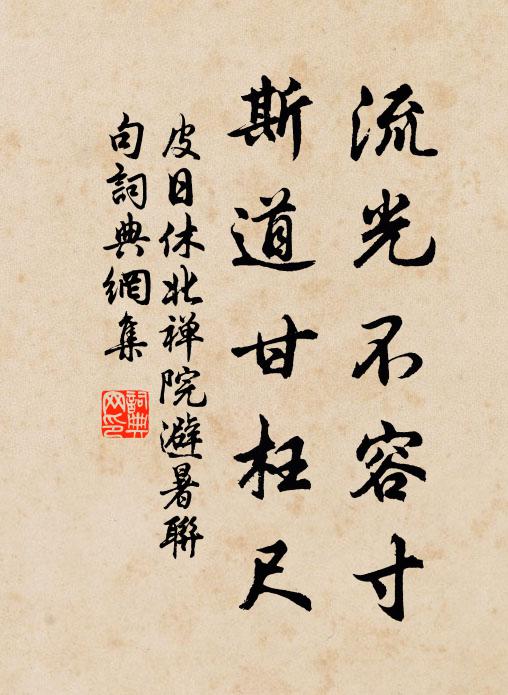 流光不容寸
斯道甘枉尺
皮日休北禅院避暑聯
句詞典網集
詞典网印